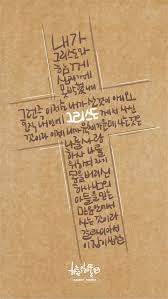 내가
그리스도와
함께
십자가에
못박혔나니
그런즉 이제는 내가 사는것이 아니요
오직 내안에 그리스도께서 사시는
것이라 이제 내가 육체 가운데 사는것은
나를 사랑
하사 나를
위하여 자기
몸을 버리신
하나님의
아들을 믿는
믿음안에서
사는것이라
갈라디아서
이장이십절